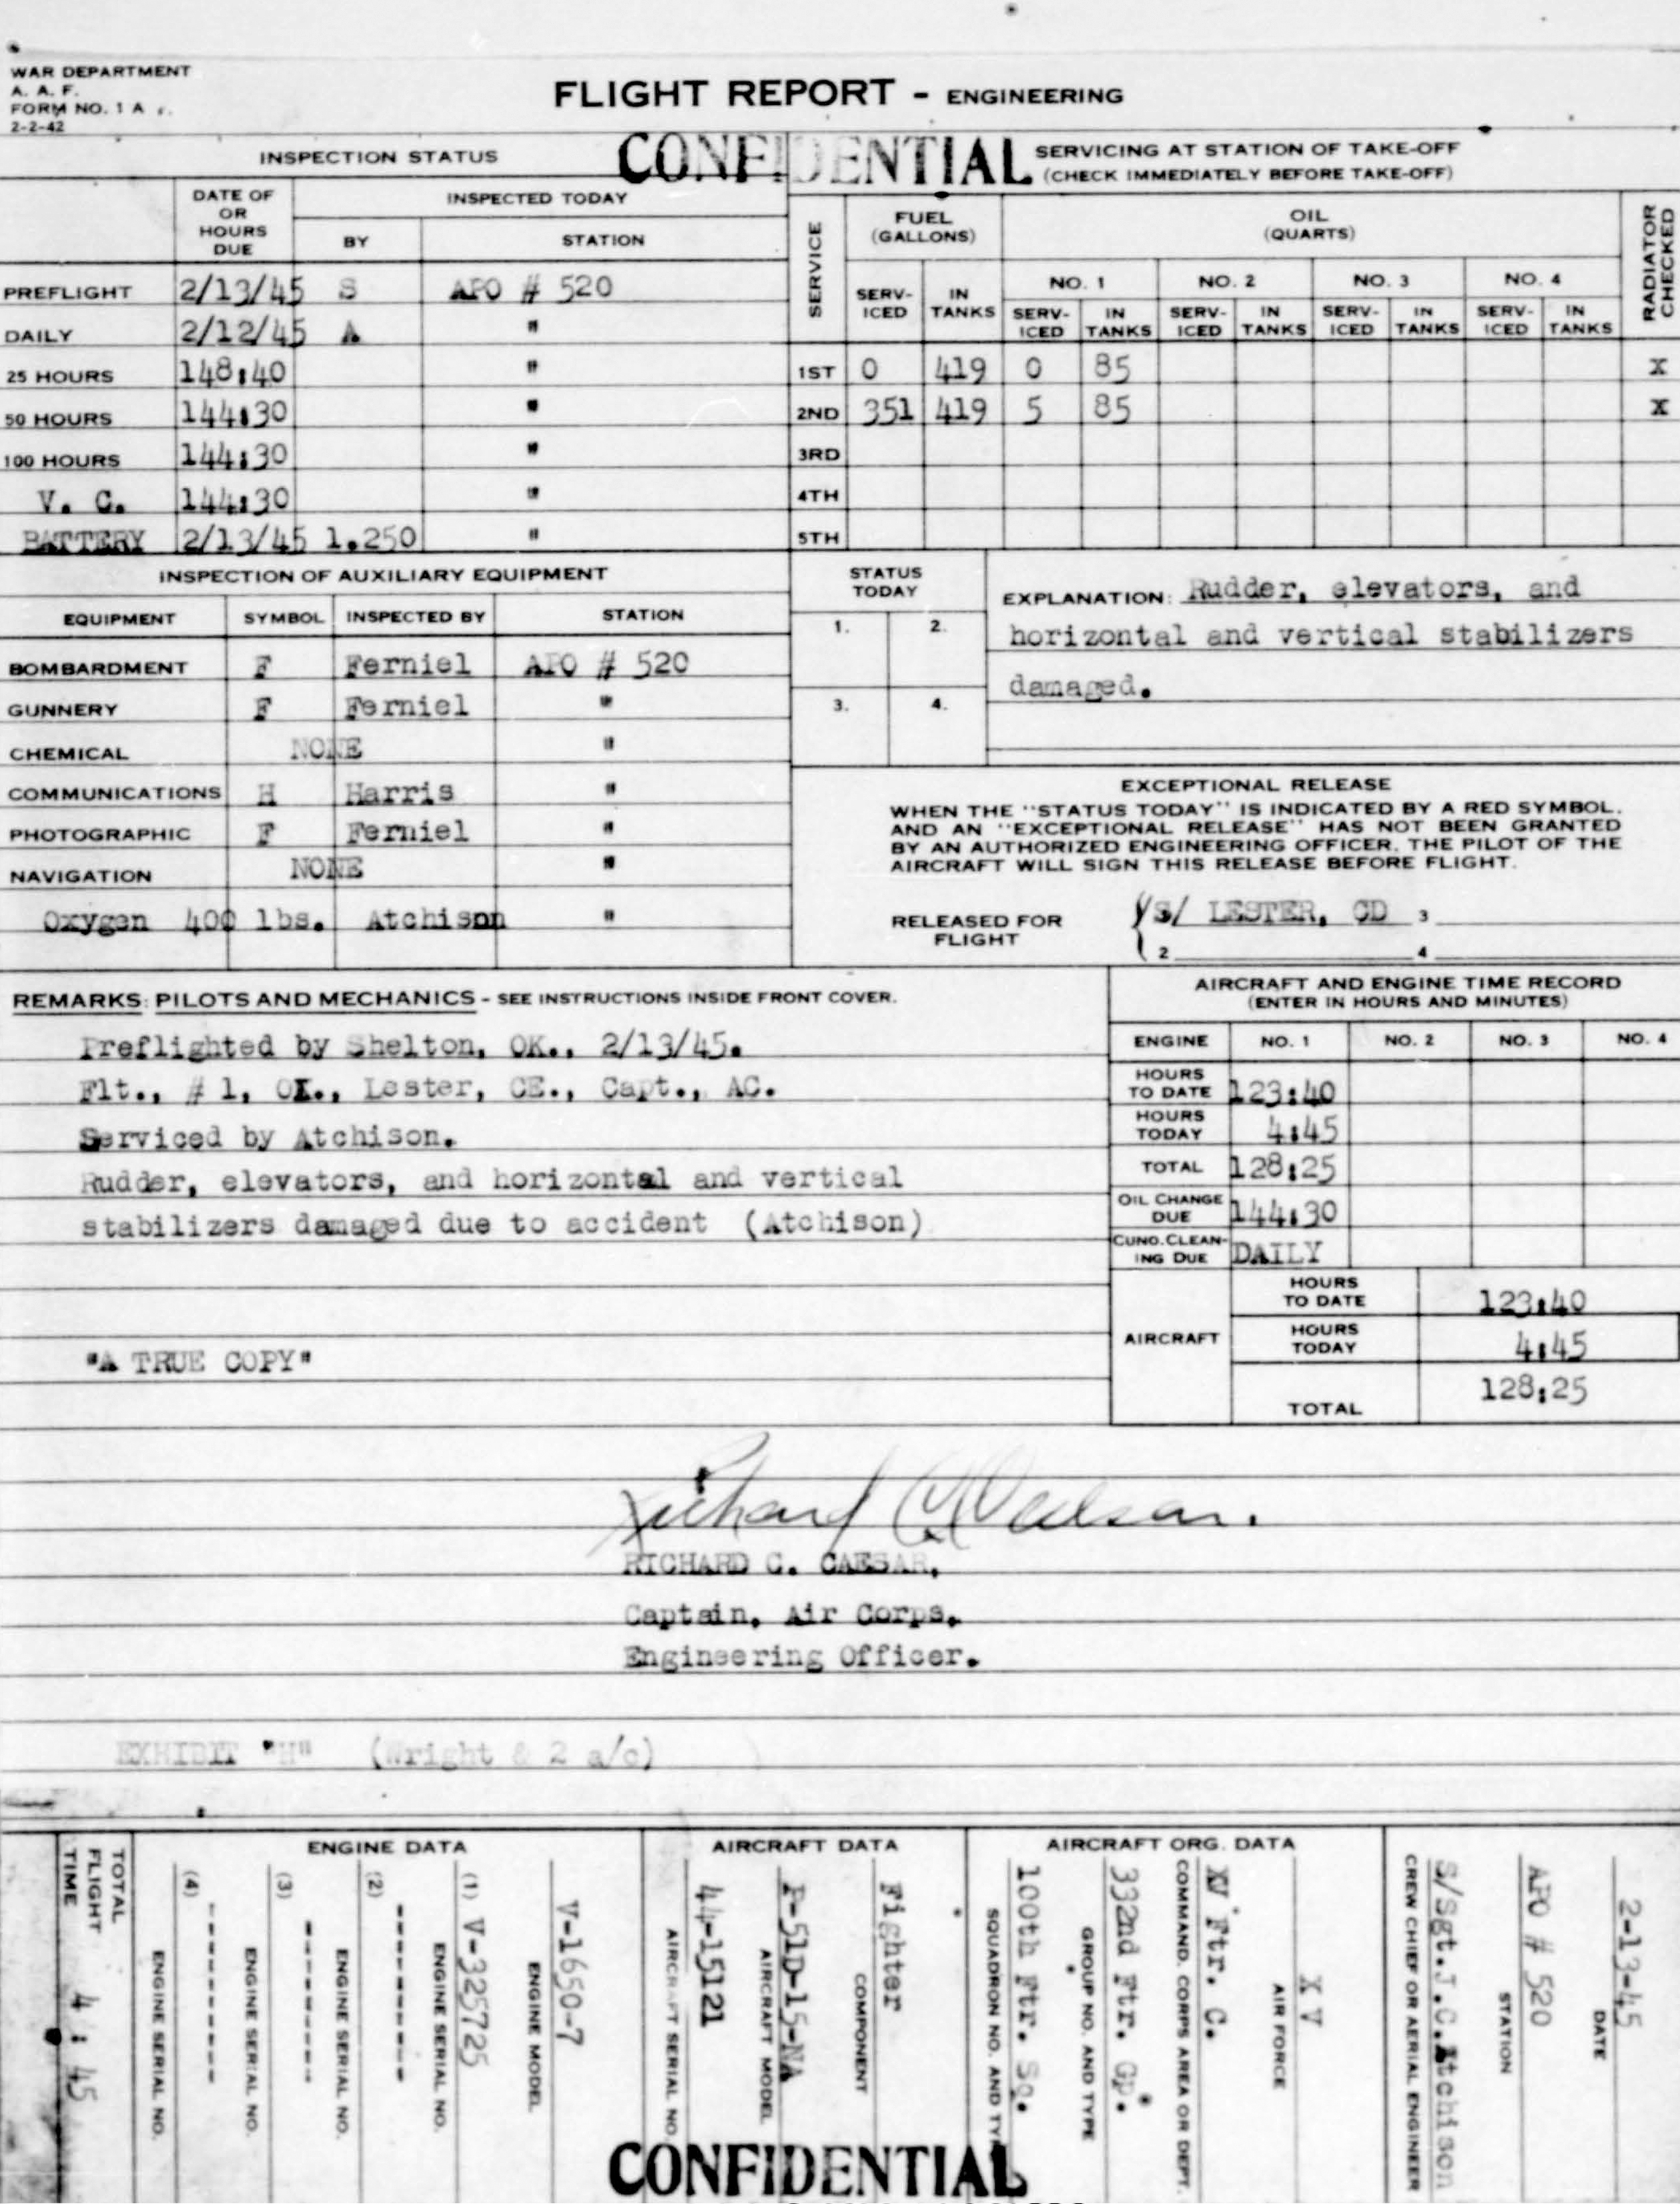 WAR DEPARTMENT
A. A. F.
FORM NO. 1 A
2-2-42
FLIGHT REPORT - ENGINEERING
CONFIDENTIAL
INSPECTION STATUS
DATE OF OR HOURS DUE
INSPECTED TODAY
BY STATION
PREFLIGHT 2/13/45 S APO # 520
DAILY 2/12/45 A "
25 HOURS 148:40 "
50 HOURS 144:30 "
100 HOURS 144:30 "
V. C. 144:30 "
BATTERY 2/13/45 1.250 "
SERVICING AT STATION OF TAKE-OFF
(CHECK IMMEDIATELY BEFORE TAKE-OFF)
SERVICE
FUEL (GALLONS)
OIL (QUARTS)
RADIATOR CHECKED
NO. 1 NO. 2 NO. 3 NO. 4
SERV-ICED IN TANKS SERV-ICED IN TANKS SERV-ICED IN TANKS SERV-ICED IN TANKS SERV-ICED IN TANKS
1ST 0 419 0 85 X
2ND 351 419 5 85 X
3RD
4TH
5TH
INSPECTION OF AUXILIARY EQUIPMENT
EQUIPMENT SYMBOL INSPECTED BY STATION
BOMBARDMENT F Ferniel APO # 520
GUNNERY F Ferniel "
CHEMICAL NONE "
COMMUNICATIONS H Harris "
PHOTOGRAPHIC F Ferniel "
NAVIGATION NONE "
Oxygen 400 lbs. Atchison "
STATUS TODAY
1. 2.
3. 4.
EXPLANATION: Rudder, elevators, and
horizontal and vertical stabilizers
damaged.
EXCEPTIONAL RELEASE
WHEN THE "STATUS TODAY" IS INDICATED BY A RED SYMBOL,
AND AN "EXCEPTIONAL RELEASE" HAS NOT BEEN GRANTED
BY AN AUTHORIZED ENGINEERING OFFICER, THE PILOT OF THE
AIRCRAFT WILL SIGN THIS RELEASE BEFORE FLIGHT.
RELEASED FOR FLIGHT
/S/ LESTER, CD 3
2 4
REMARKS: PILOTS AND MECHANICS - SEE INSTRUCTIONS INSIDE FRONT COVER.
Preflighted by Shelton, OK., 2/13/45.
Flt., # 1, OK., Lester, CE., Capt., AC.
Serviced by Atchison.
Rudder, elevators, and horizontal and vertical
stabilizers damaged due to accident (Atchison)
"A TRUE COPY"
AIRCRAFT AND ENGINE TIME RECORD
(ENTER IN HOURS AND MINUTES)
ENGINE NO. 1 NO. 2 NO. 3 NO. 4
HOURS TO DATE 123:40
HOURS TODAY 4:45
TOTAL 128:25
OIL CHANGE DUE 144:30
CUNO. CLEAN-ING DUE DAILY
AIRCRAFT
HOURS TO DATE 123:40
HOURS TODAY 4:45
TOTAL 128:25
RICHARD C. CAESAR,
Captain, Air Corps,
Engineering Officer.
EXHIBIT "H" (Wright & 2 a/c)
TOTAL FLIGHT TIME 4:45
ENGINE DATA
(4) ------- ENGINE SERIAL NO.
(3) ------- ENGINE SERIAL NO.
(2) ------- ENGINE SERIAL NO.
(1) V-325725 ENGINE SERIAL NO.
V-1650-7 ENGINE MODEL
AIRCRAFT DATA
44-15121 AIRCRAFT SERIAL NO.
P-51D-15-NA AIRCRAFT MODEL
Fighter COMPONENT
AIRCRAFT ORG. DATA
100th Ftr. Sq. SQUADRON NO. AND TYPE
332nd Ftr. Gp. GROUP NO. AND TYPE
XV Ftr. C. COMMAND, CORPS AREA OR DEPT.
XV AIR FORCE
S/Sgt. J.C. Atchison CREW CHIEF OR AERIAL ENGINEER
APO # 520 STATION
2-13-45 DATE
CONFIDENTIAL